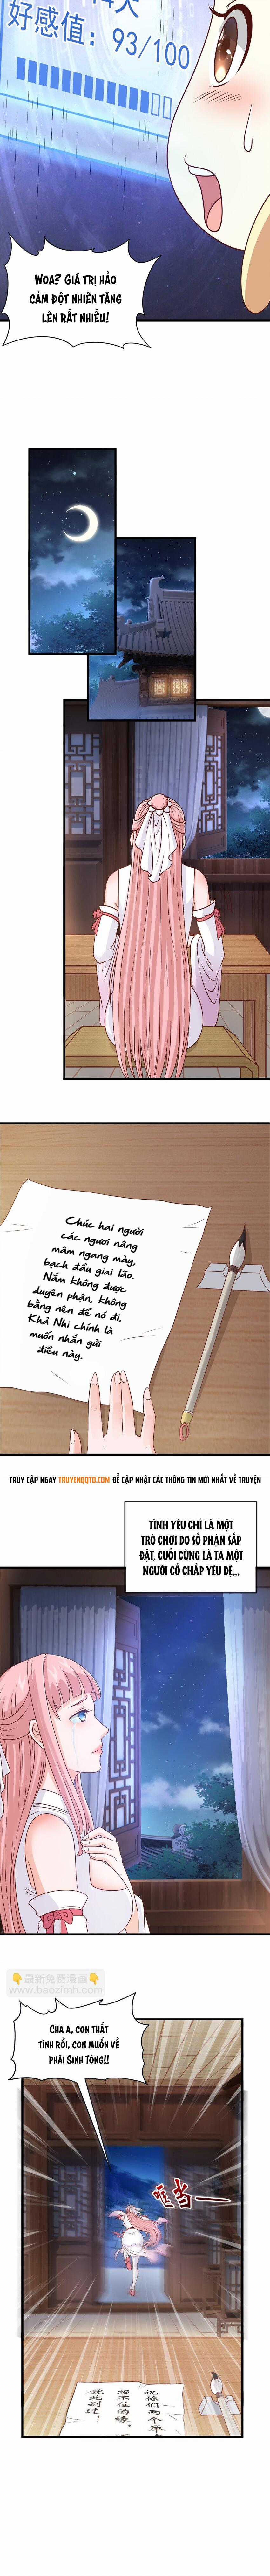 4天
好感值：93/100
WOA? GIÁ TRỊ HẢO
CẢM ĐỘT NHIÊN TĂNG
LÊN RẤT NHIỀU!
Chúc hai người
các ngươi nâng
mâm ngang mày,
bạch đầu giai lão.
Nắm không được
duyên phận, không
bằng nên để nó đi,
Khả Nhi chính là
muốn nhắn gửi
điều này.
TRUY CẬP NGAY TRUYENQQTO.COM ĐỂ CẬP NHẬT CÁC THÔNG TIN MỚI NHẤT VỀ TRUYỆN
TÌNH YÊU CHỈ LÀ MỘT
TRÒ CHƠI DO SỐ PHẬN SẮP
ĐẶT, CUỐI CÙNG LÀ TA MỘT
NGƯỜI CỐ CHẤP YÊU ĐỆ...
👇最新免费漫画👇
www.baozimh.com
CHA A, CON THẤT
TÌNH RỒI, CON MUỐN VỀ
PHÁI SINH TÔNG!!
哐当
祝你们两个
握不住的缘，
就此别过！